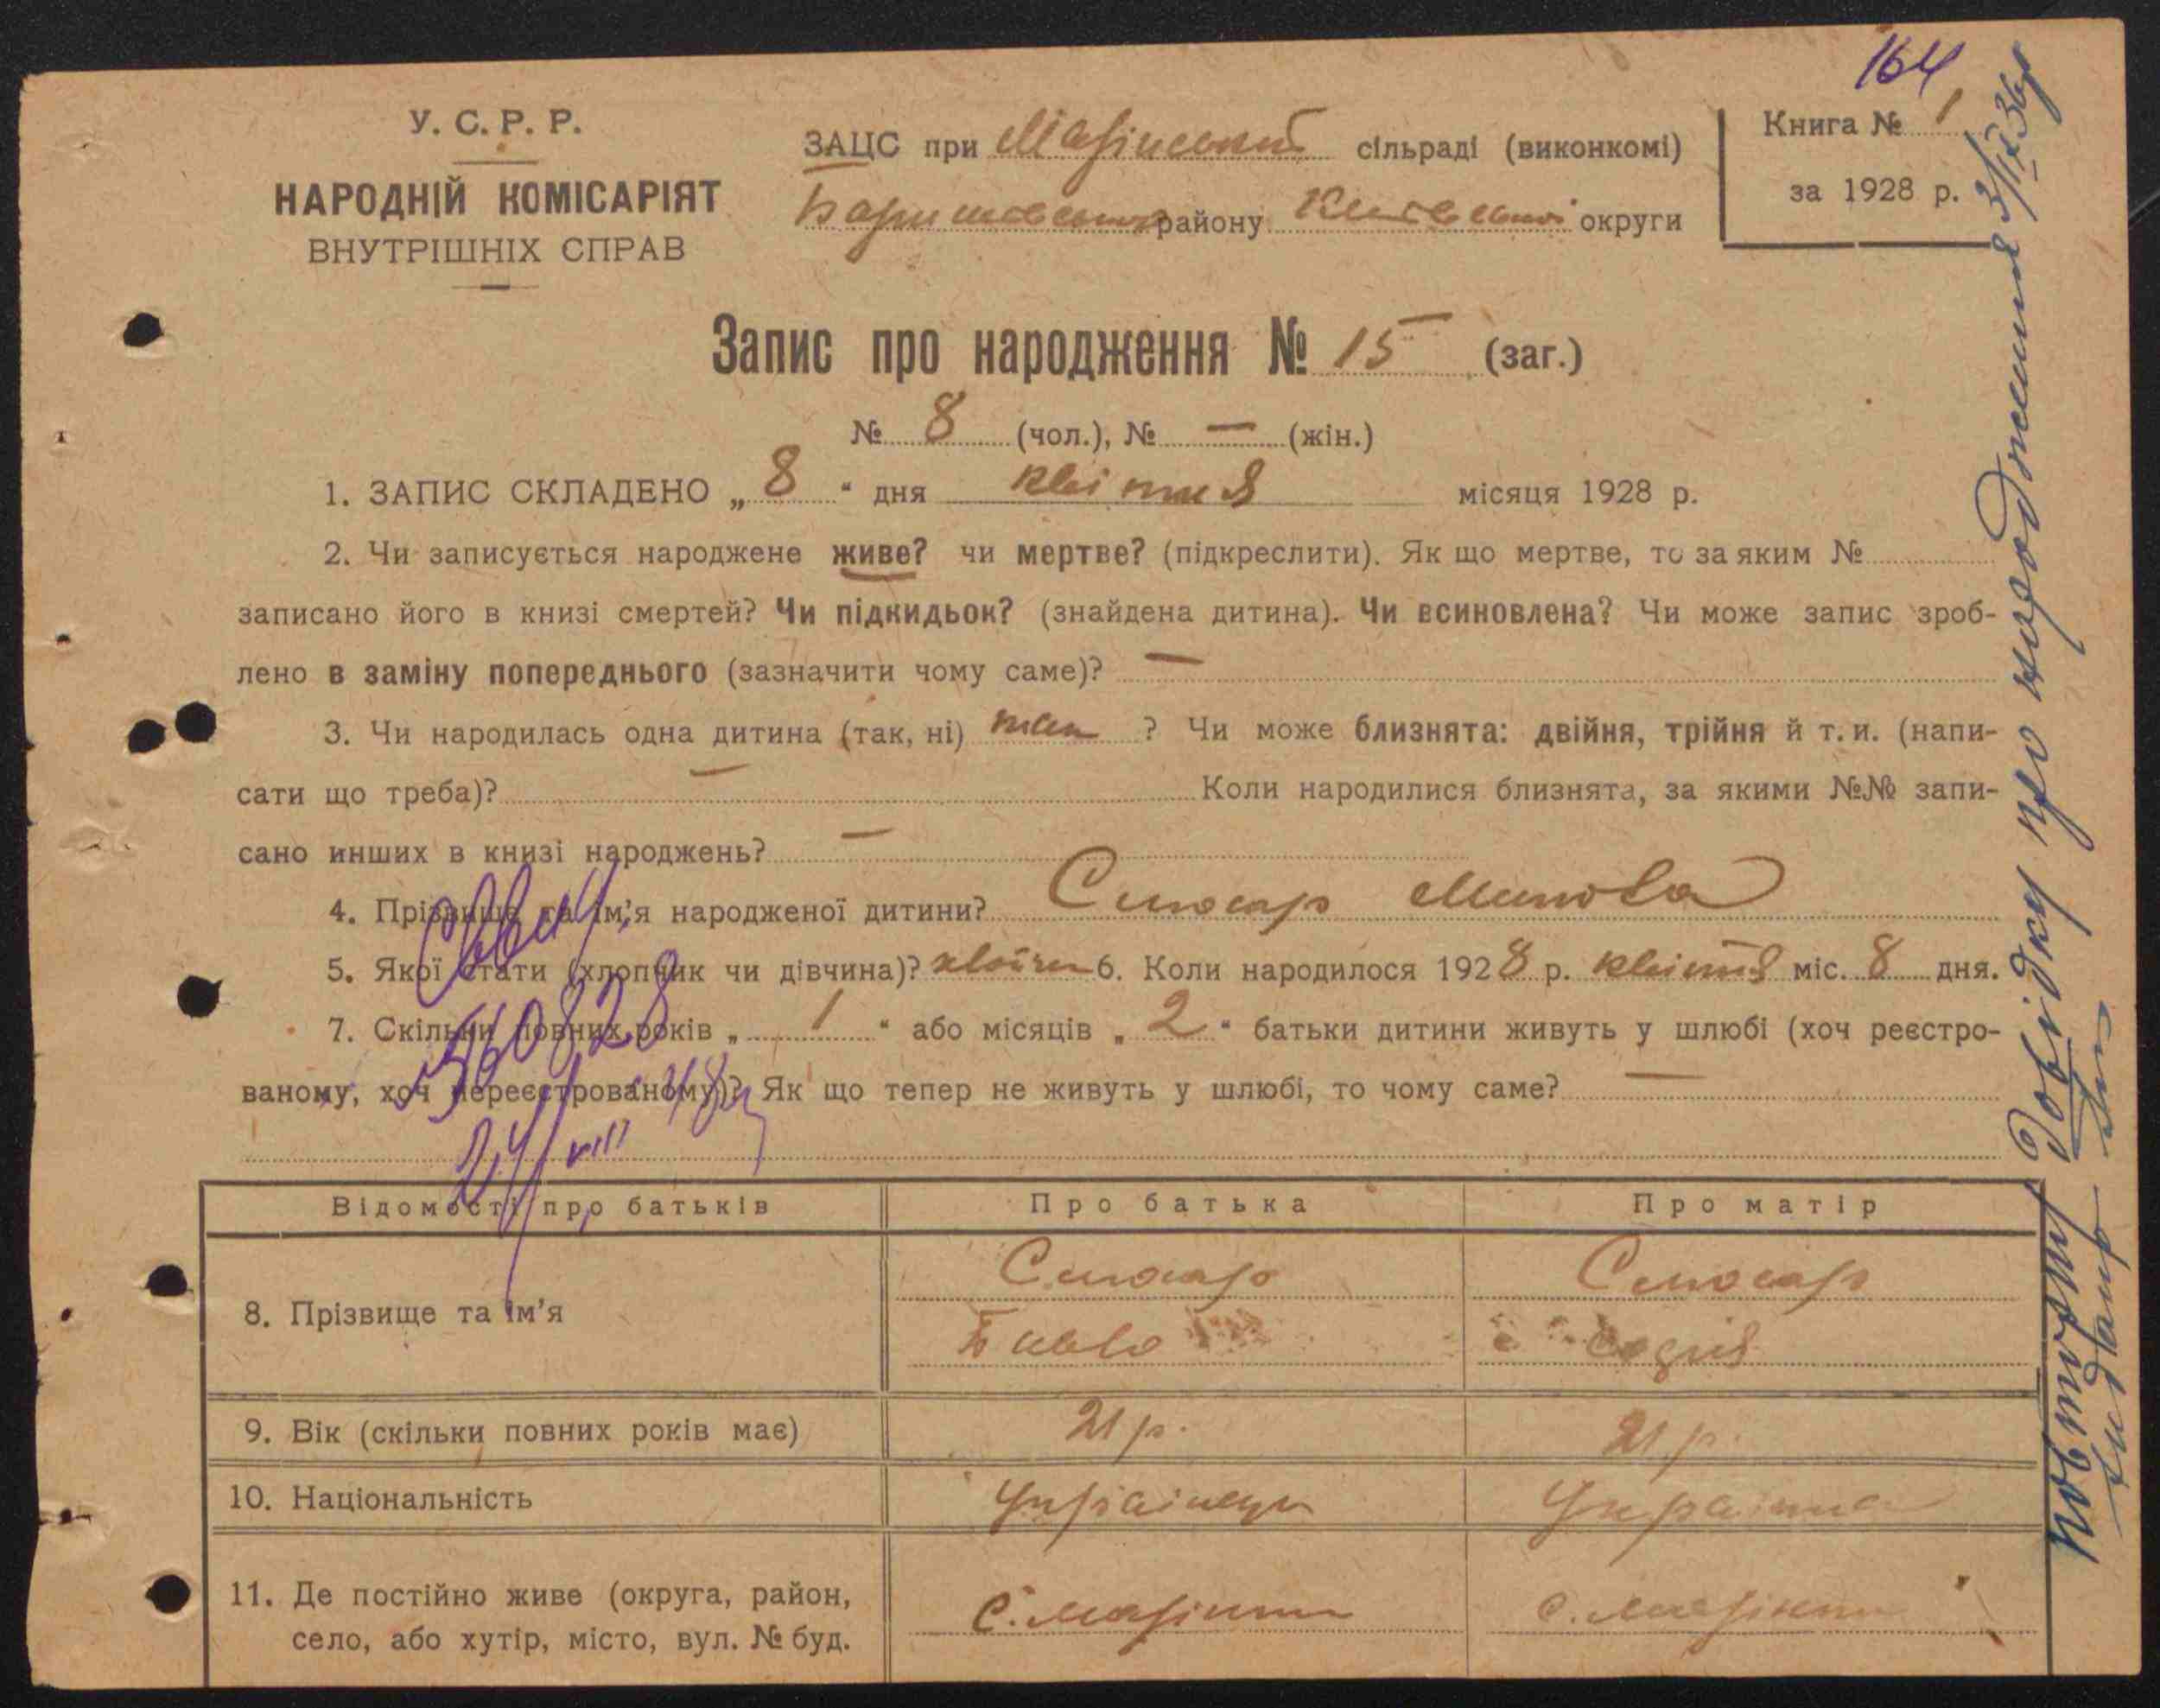 164
У. С. Р. Р.
НАРОДНІЙ КОМІСАРІЯТ
ВНУТРІШНІХ СПРАВ
ЗАЦС при сільраді (виконкомі)
району Київської округи
Книга № 1
за 1928 р.
Запис про народження № 15 (заг.)
№ 8 (чол.), № — (жін.)
1. ЗАПИС СКЛАДЕНО „ 8 “ дня квітня місяця 1928 р.
2. Чи записується народжене живе? чи мертве? (підкреслити). Як що мертве, то за яким №
записано його в книзі смертей? Чи підкидьок? (знайдена дитина). Чи всиновлена? Чи може запис зроб-
лено в заміну попереднього (зазначити чому саме)? —
3. Чи народилась одна дитина (так, ні) так ? Чи може близнята: двійня, трійня й т. и. (напи-
сати що треба)? — Коли народилися близнята, за якими №№ запи-
сано инших в книзі народжень? —
4. Прізвище та ім’я народженої дитини? Слюсар Микола
5. Якої стати (хлопчик чи дівчина)? 6. Коли народилося 1928 р. квітня міс. 8 дня.
7. Скільки повних років „ 1 “ або місяців „ 2 “ батьки дитини живуть у шлюбі (хоч реєстро-
ваному, хоч нереєстрованому)? Як що тепер не живуть у шлюбі, то чому саме? —
Відомості про батьків Про батька Про матір
8. Прізвище та ім’я Слюсар Слюсар
Павло
9. Вік (скільки повних років має) 21 р. 21 р.
10. Національність Українець Українка
11. Де постійно живе (округа, район,
село, або хутір, місто, вул. № буд.
повторну довідку про народження